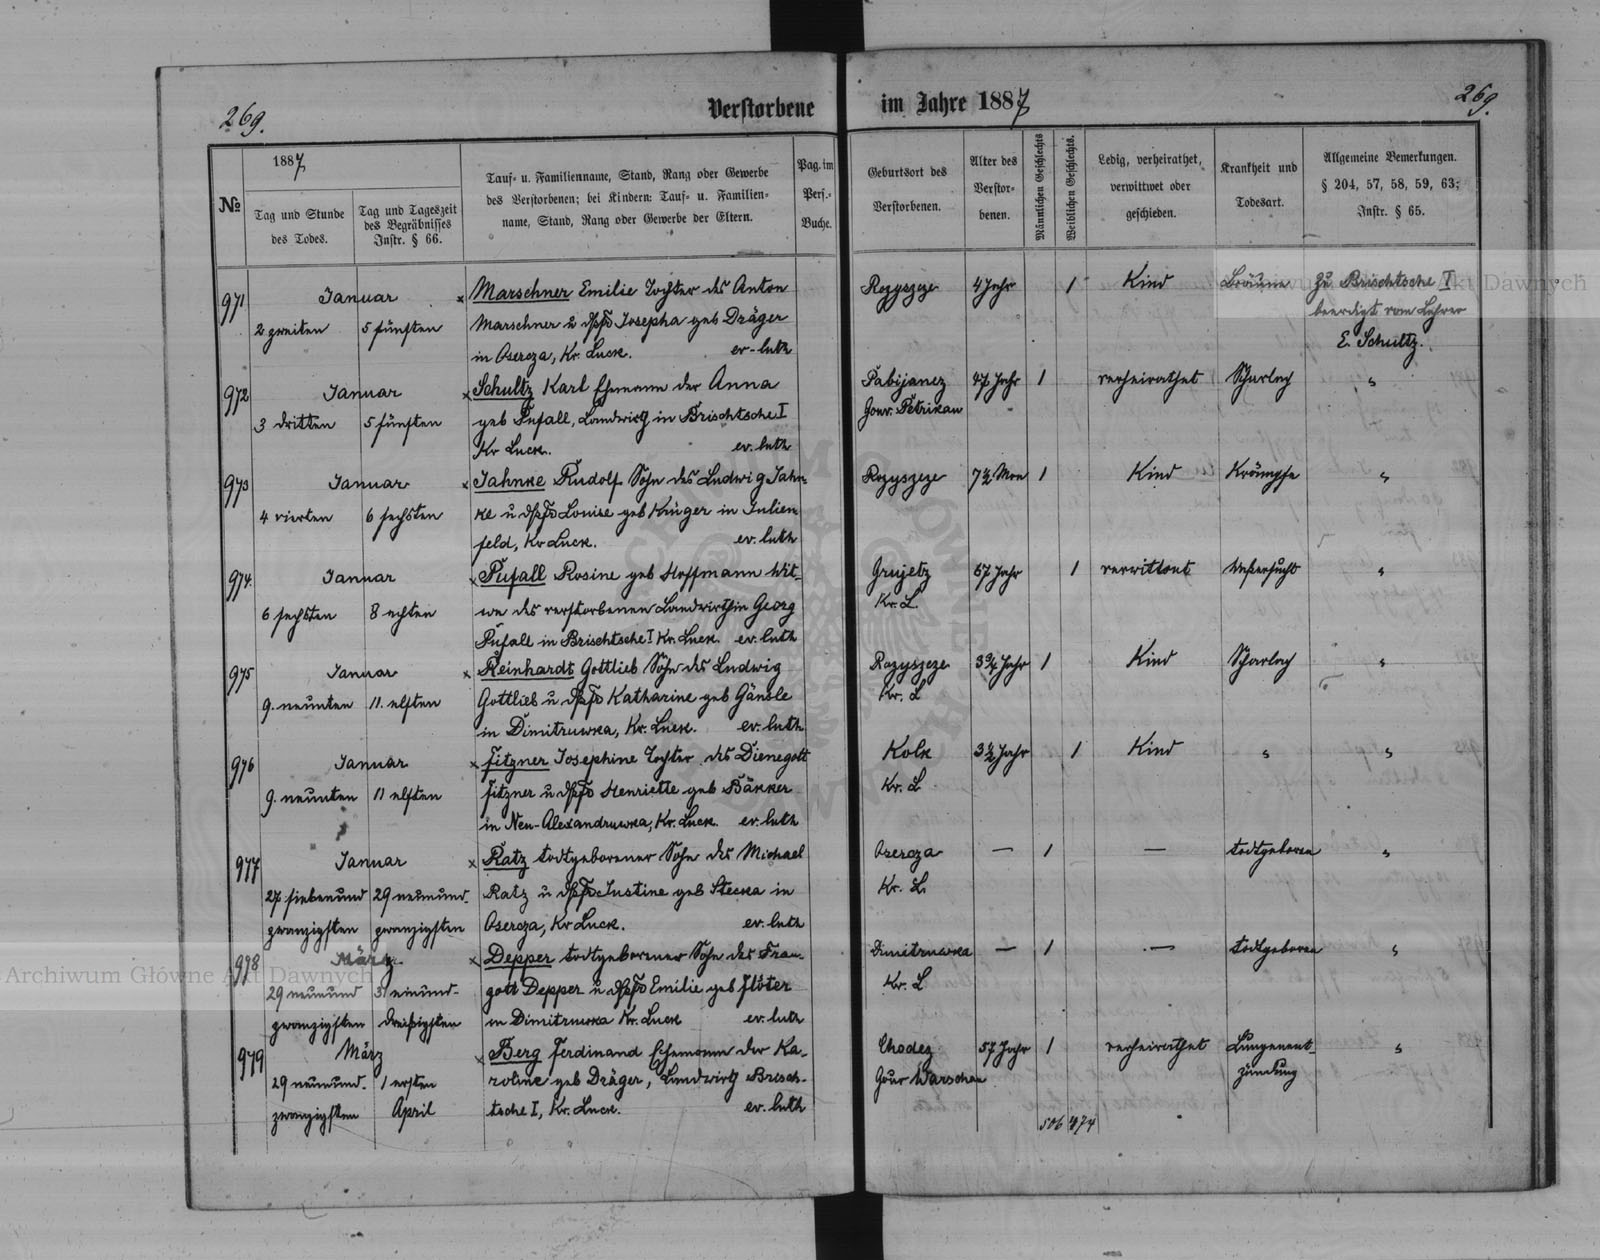 269.
Verstorbene
im Jahre 1887
269.
№
1887
Tag und Stunde
des Todes.
Tag und Tageszeit
des Begräbnisses
Instr. § 66.
Tauf- u. Familienname, Stand, Rang oder Gewerbe
des Verstorbenen; bei Kindern: Tauf- u. Familien-
name, Stand, Rang oder Gewerbe der Eltern.
Pag. im
Pers.-
Buche.
Geburtsort des
Verstorbenen.
Alter des
Verstor-
benen.
Männlichen Geschlechts
Weiblichen Geschlechts.
Ledig, verheirathet,
verwittwet oder
geschieden.
Krankheit und
Todesart.
Allgemeine Bemerkungen.
§ 204, 57, 58, 59, 63;
Instr. § 65.
971
Januar
2 zweiten
5 fünften
× Marschner Emilie Tochter des Anton
Marschner u. Josepha geb Dräger
in Oseroza, Kr. Luck. ev-luth
Rozyszcze
4 Jahr
1
Kind
Bräune
zu Brischtsche I
beerdigt vom Lehrer
E. Schultz.
972
Januar
3 dritten
5 fünften
× Schultz Karl Ehemann der Anna
geb Pufall, Landwirth in Brischtsche I
Kr Luck. ev. luth
Pabijanez
Gouv. Petrikau
47 Jahr
1
verheirathet
Scharlach
"
973
Januar
4 vierten
6 sechsten
× Jahnke Rudolf Sohn des Ludwig Jahn-
ke u. Louise geb Krüger in Julien
feld, Kr Luck. ev. luth
Rozyszcze
7½ Mon
1
Kind
Krämpfe
"
974.
Januar
6 sechsten
8 echten
× Pufall Rosine geb Hoffmann Wit-
we des verstorbenen Landwirthin Georg
Pufall in Brischtsche I Kr. Luck. ev. luth
Grujetz
Kr. L.
67 Jahr
1
verwittwet
Waßersucht
"
975
Januar
9. neunten
11. elften
× Reinhardt Gottlieb Sohn des Ludwig
Gottlieb u. Katharine geb Gänsle
in Dimitruwka, Kr. Luck. ev. luth
Rozyszcze
Kr. L
3¾ Jahr
1
Kind
Scharlach
"
976
Januar
9. neunten
11 elften
× Fitzner Josephine Tochter des Dienegott
Fitzner u. Henriette geb Bäkker
in Neu-Alexandruwka, Kr. Luck. ev. luth
Kolk
Kr. L
3½ Jahr
1
Kind
"
"
977
Januar
27 siebenund
zwanzigsten
29 neunund-
zwanzigsten
× Ratz todtgeborener Sohn des Michael
Ratz u. Justine geb Stecka in
Oseroza, Kr Luck. ev. luth
Oseroza
Kr. L.
—
1
—
todtgeboren
"
978
März
29 neunund
zwanzigsten
31 einund-
dreißigsten
× Depper todtgeborener Sohn des Frau-
gott Depper u. Emilie geb Flöter
in Dimitruwka Kr. Luck ev. luth
Dimitruwka
Kr. L
—
1
—
todtgeboren
"
979
März
29 neunund-
zwanzigsten
1 ersten
April
× Berg Ferdinand Ehemann der Ka-
roline geb Dräger, Landwirth Brisch-
tsche I, Kr. Luck. ev. luth
Chodez
Gouv Warschau
57 Jahr
1
verheirathet
Lungenent-
zündung
"
506 474
Archiwum Główne Akt Dawnych
Archiwum Główne Akt Dawnych